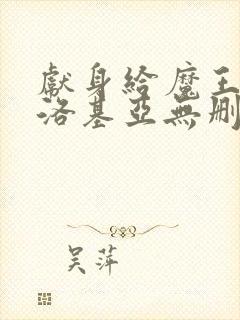 獻身給魔王
洛基亞無刪
吴萍